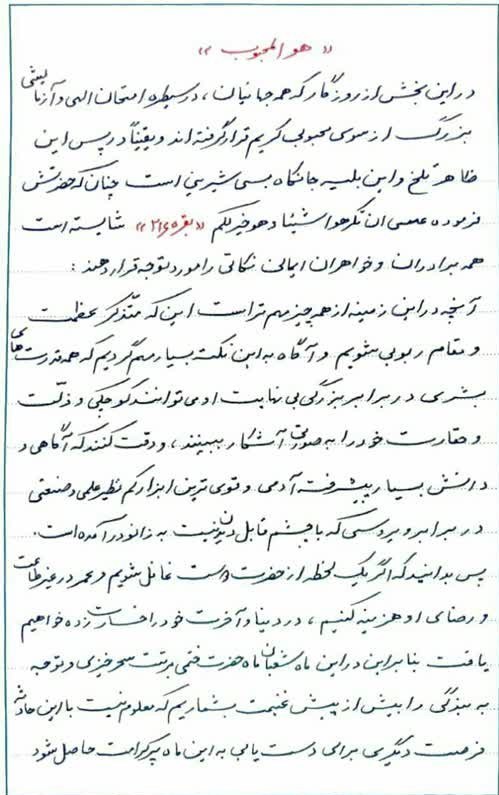 « هو المحبوب »
در این بخش از روزگار که همه جهانیان، در سیطره امتحان الهی و آزمایشی
بزرگ از سوی محبوبی کریم قرار گرفته اند و یقیناً در پس این
ظاهر تلخ و این بلیه جانکاه بسی شیرینی است چنان که حضرتش
فرموده عسی ان تکرهوا شیئا و هو خیر لکم «بقره ی ۲۱۶» شایسته است
همه برادران و خواهران ایمانی نکاتی را مورد توجه قرار دهند :
آنچه در این زمینه از همه چیز مهم تر است این که متذکر عظمت
و مقام ربوبی شویم و آگاه به این نکته بسیار مهم گردیم که همه قدرت های
بشری در برابر بزرگی بی نهایت او می توانند کوچکی و ذلت
و حقارت خود را به صورتی آشکار ببینند ، و دقت کنند که آگاهی و
دانش بسیار پیشرفته آدمی و قوی ترین ابزار کم نظیر علمی و صنعتی
در برابر ویروسی که با چشم قابل دیدن نیست به زانو درآمده است.
پس بدانید که اگر یک لحظه از حضرت دوست غافل شویم و عمر در غیر طاعت
و رضای او هزینه کنیم ، در دنیا و آخرت خود را خسارت زده خواهیم
یافت بنابراین در این ماه شعبان ماه حضرت ختمی مرتبت سحرخیزی و توجه
به بندگی را بیش از پیش غنیمت بشماریم که معلوم نیست با این حادثه
فرصت دیگری برای دست یابی به این ماه پر کرامت حاصل شود